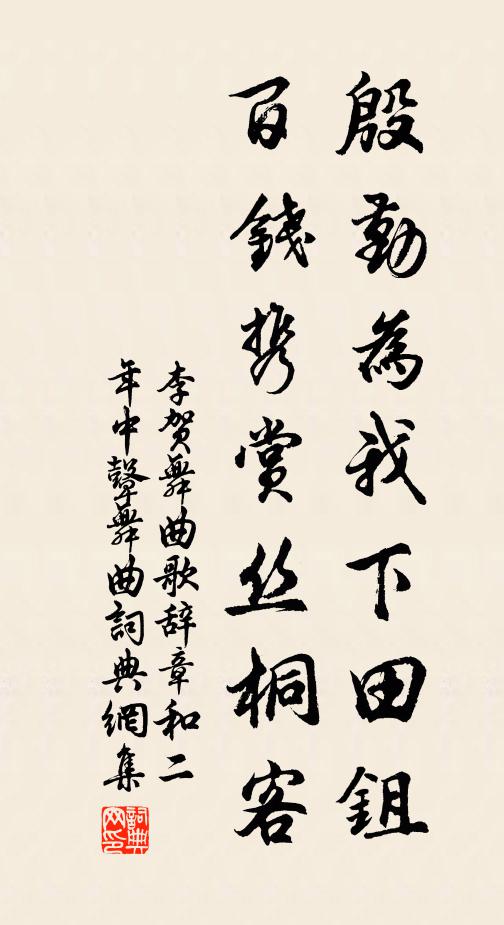 殷勤為我下田鉏
百錢携賞丝桐客
李賀舞曲歌辞章和二
年中鼙舞曲詞典網集
詞典
网印